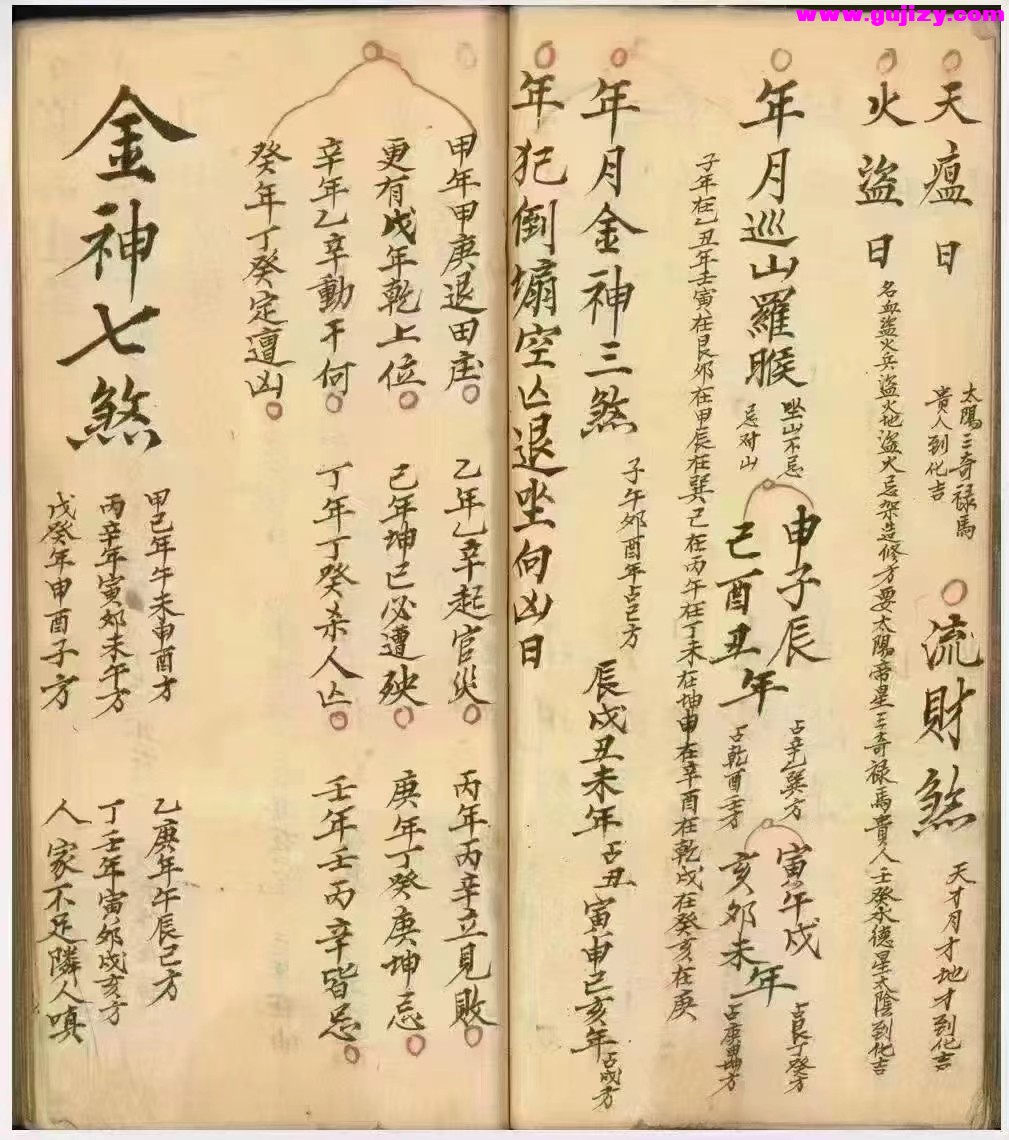 www.gujizy.com
天瘟日
太陽三奇禄馬
貴人到化吉
流財煞
天才月才地才到化吉
火盜日
名血盜火兵盜火地盜火忌架造修方要太陽帝星三奇禄馬貴人壬癸水德星太陰到化吉
年月巡山羅睺
坐山不忌
忌对山
申子辰
己酉丑年
占辛乙巽方
占乾酉方
寅午戌
亥卯未年
占艮丁癸方
占庚甲坤方
子年在乙丑年壬寅在艮卯在甲辰在巽己在丙午在丁未在坤申在辛酉在乾戌在癸亥在庚
年月金神三煞
子午卯酉年占巳方
辰戌丑未年占丑
寅申巳亥年占戌方
年犯倒塌空亡退坐向凶日
甲年甲庚退田庄
乙年乙辛起官災
丙年丙辛立見敗
更有戊年乾上位
己年坤己必遭殃
庚年丁癸庚坤忌
辛年乙辛動干何
丁年丁癸杀人亡
壬年壬丙辛皆忌
癸年丁癸定遭凶
金神七煞
甲己年午未申酉才
乙庚年午辰己方
丙辛年寅卯未午方
丁壬年寅卯戌亥方
戊癸年申酉子方
人家不足隣人嗔